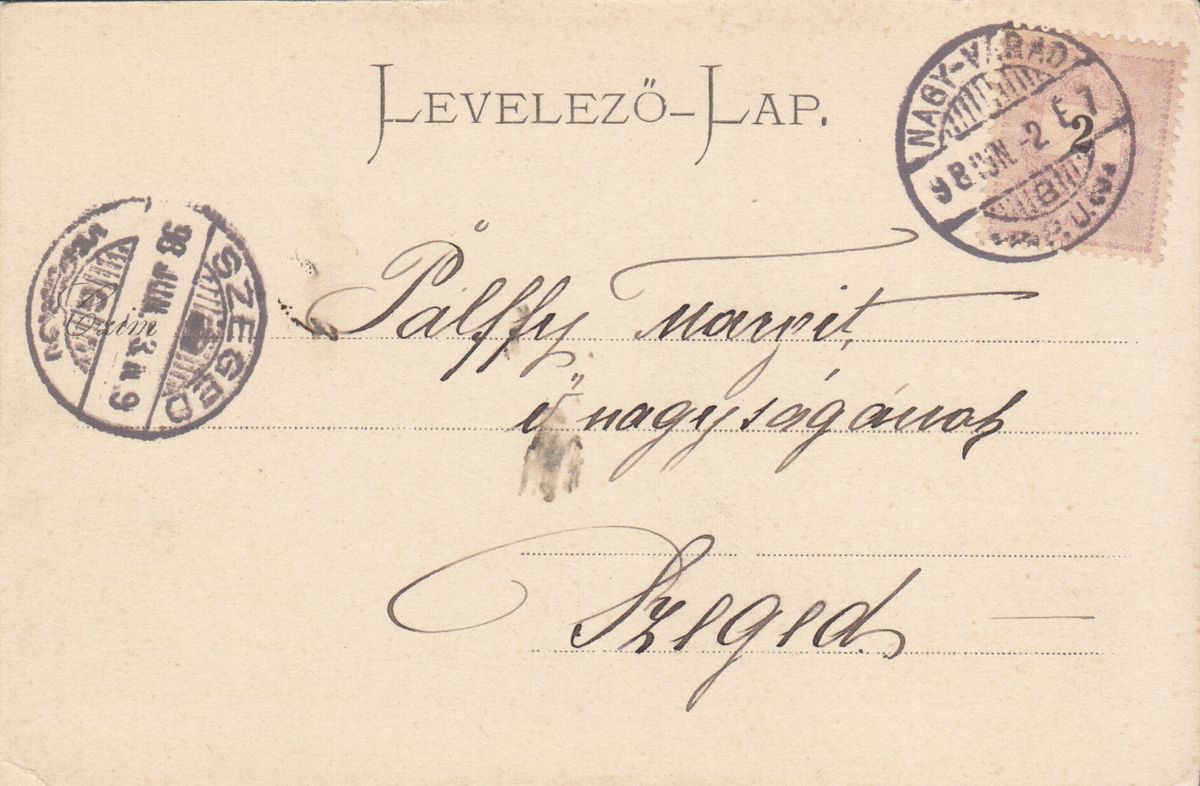 LEVELEZŐ-LAP.
NAGY-VÁRAD
98 JUN -2 É. 7
B
P.U.
2
SZEGED
98 JUN. 3. N 9
Czim
Pálffy Margit,
ő nagyságának
Szeged